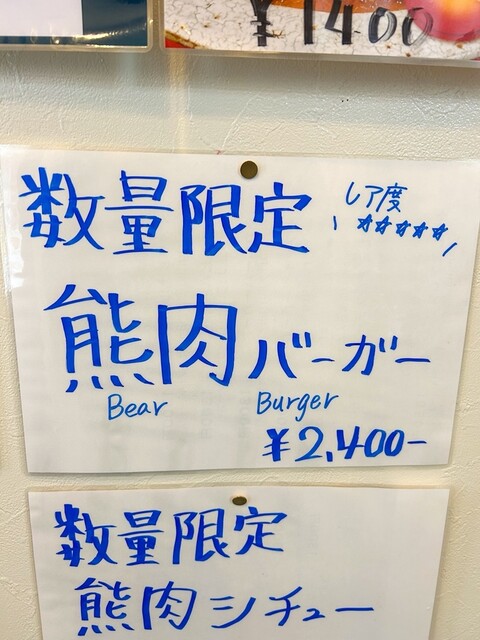 ¥1400
数量限定
レア度
☆☆☆☆☆
熊肉バーガー
Bear Burger
¥2,400-
数量限定
熊肉シチュー